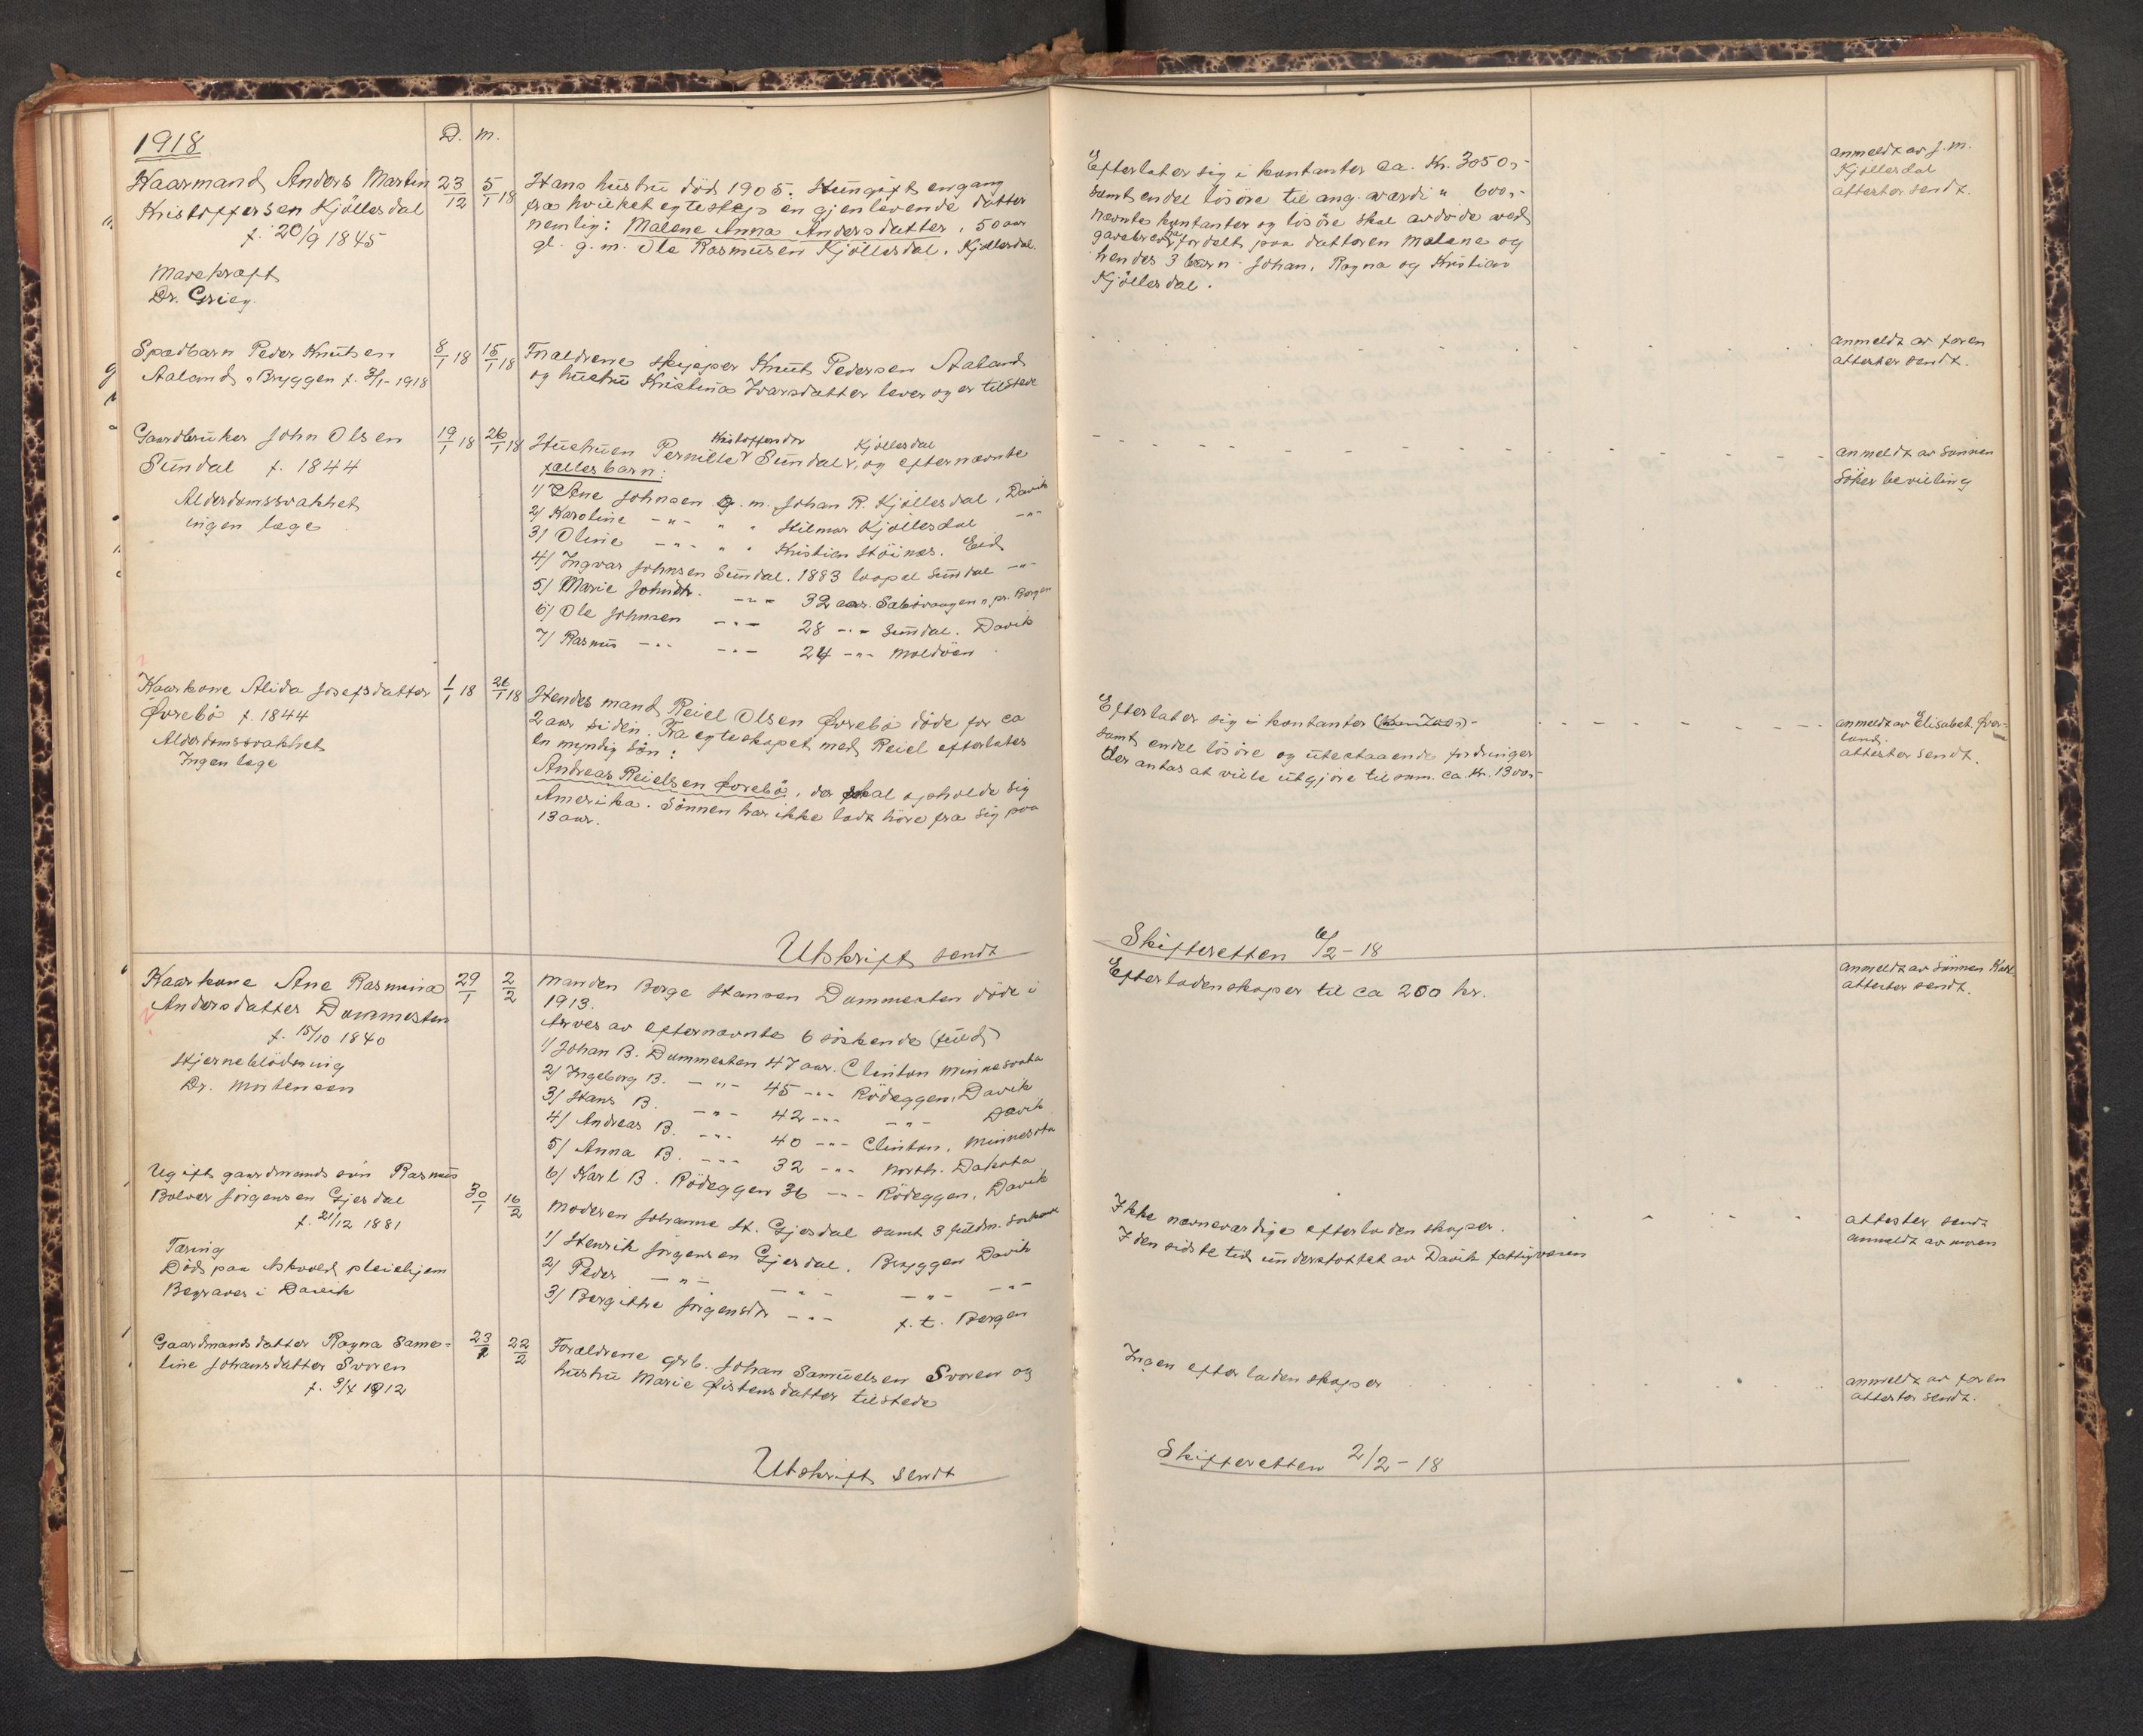 1918
D. M.
Kaarmand Anders Martin 23/12 5/1 18
Kristoffersen Kjöllesdal
f. 20/9 1845
Mavekræft
Dr. Grieg
Hans hustru död 1905. Hun gift engang
fra hvilket egteskap en gjenlevende datter
nemlig: Malene Anna Andersdatter, 50 aar
gl. g.m. Ole Rasmusen Kjöllesdal, Kjöllesdal.
Efterlater sig i kontanter ca. Kr. 3050,-
samt endel lösöre til ang. værdi " 600,-
Nævnte kontanter og lösöre skal avdöde ved
gavebrev ha fordelt paa datteren Malene og
hendes 3 barn Johan, Ragna og Kristian
Kjöllesdal.
anmeldt av J. M.
Kjöllesdal
attester sendt.
Spædbarn Peder Knutsen 8/1 18 15/1 18
Aaland, Bryggen f. 3/1-1918
Forældrene skipper Knut Pedersen Aaland
og hustru Kristina Ivarsdatter lever og er tilstede
anmeldt av faren
attester sendt.
Gaardbruker John Olsen 19/1 18 26/1 18
Sundal f. 1844
Alderdomssvakhet
ingen læge
Kristoffersdtr Kjöllesdal
Hustruen Pernille Sundal, og efternævnte
fællesbarn:
1) Ane Johnsen g. m. Johan R. Kjöllesdal, Davik
2) Karoline -"- " " Hilmar Kjöllesdal -"-
3) Oline -"- " " Kristien Höinæs. Eid
4) Ingvar Johnsen Sundal. 1883 Sundal -"-
5) Marie Johndtr. -"- 32 aar. pr. Bergen
6) Ole Johnsen -"- 28 -"- Sundal. Davik
7) Rasmus -"- -"- 24 -"- Moldöen
anmeldt av sönnen
Söker bevilling
Kaarkone Alida Josefsdatter 1/1 18 26/1 18
Övrebö f. 1844
Alderdomssvakhet
Ingen læge
Hendes mand Reiel Olsen Övrebö döde for ca
2 aar siden. Fra egteskapet med Reiel efterlates
en myndig sön:
Andreas Reielsen Övrebö, der skal opholde sig
Amerika. Sönnen har ikke ladt höre fra sig paa
13 aar.
Efterlater sig i kontanter
samt endel lösöre og utestaaende fordringer
der antas at ville utgjöre til sam. ca. kr. 1300,-
anmeldt av Elisabet Över-
land.
attester sendt.
Utskrift sendt
Skifteretten 6/2-18
Kaarkone Ane Rasmina 29/1 2/2
Andersdatter Dammesten
f. 15/10 1840
Hjerneblödning
Dr. Mortensen
Manden Børge Hansen Dammesten döde i
1913.
Arves av efternævnte 6 söskende (fuld)
1) Johan B. Dammesten 47 aar. Clinton Minnesota
2) Ingeborg B. -"- 45 -"- Rödeggen, Davik
3) Hans B. -"- 42 -"- -"- Davik
4) Andreas B. -"- 40 -"- Clinton, Minnesota
5) Anna B. -"- 32 -"- North. Dakota
6) Karl B. Rödeggen 36 -"- Rödeggen, Davik
Efterladenskaper til ca 200 kr.
anmeldt av sönnen Karl
attester sendt.
Ugift gaardmands sön Rasmus
Bolver Jörgensen Gjesdal 30/1 16/2
f. 21/12 1881
Tæring
Död paa Askvold pleiehjem
Begraves i Davik
Moderen Johanne H. Gjesdal samt 3 fuldm. söskende
1) Henrik Jörgensen Gjesdal, Bryggen Davik
2) Peder -"- -"- -"- -"-
3) Bergithe Jörgensdtr -"- f. t. Bergen
Ikke nævneværdige efterladenskaper.
I den sidste tid understöttet av Davik fattigvæsen
attester sendt
anmeldt av moren
Gaardmandsdatter Ragna Same- 23/2 22/2
line Johansdatter Svoren
f. 3/4 1912
Forældrene grb. Johan Samuelsen Svoren og
hustru Marie Östensdatter tilstede
Ingen efterladenskaper
anmeldt av faren
attester sendt.
Utskrift sendt
Skifteretten 2/2-18